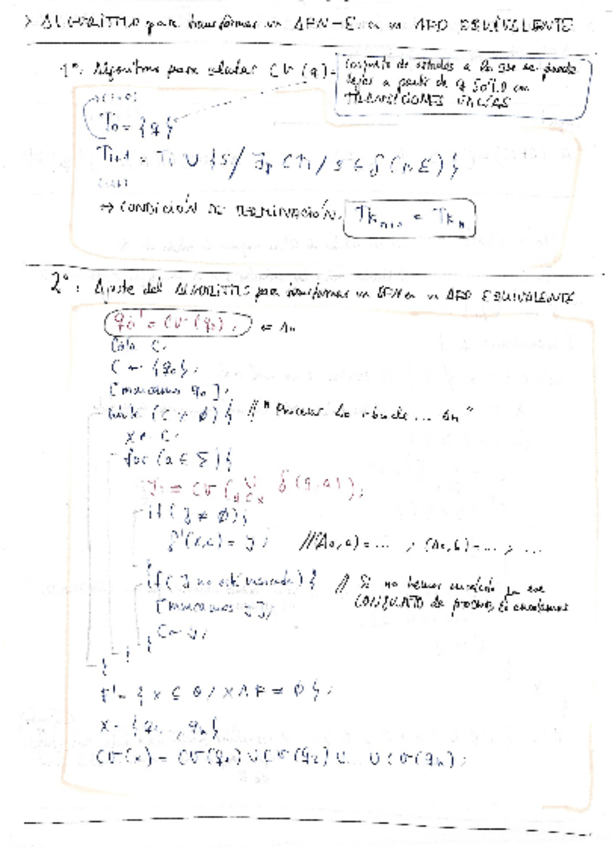 > ALGORITMO para transformar un AFN-E en un AFD EQUIVALENTE
1º: Algoritmo para calcular CV(q) =
Conjunto de estados a los que se puede
llegar a partir de q SOLO con
TRANSICIONES VACÍAS
T₀ = {q}
Ti+1 = Ti ∪ {s / ∃p ∈ Ti / s ∈ δ(p, E)}
→ CONDICIÓN DE TERMINACIÓN: Tk n+1 = Tk n
2º: Ajuste del ALGORITMO para transformar un AFN en un AFD EQUIVALENTE
q₀' = CV(q₀); = A₀
Cola C;
C ← {q₀};
[marcamos q₀];
while (C ≠ ∅) { // "Procesar
x ← C;
for (a ∈ Σ) {
y = CV(∪ q∈x δ(q,a));
if (y ≠ ∅) {
δ'(x,a) = y; // (A₀,a) = ... ; (A₀,b) = ... ; ...
}
if (y no está marcada) { // Si no hemos
CONJUNTO de
[marcamos y];
C ← y;
}
}
}
F' = { x ⊆ Q / x ∧ F ≠ ∅ };
x = {q₁ .. qn}
CV(x) = CV(q₁) ∪ CV(q₂) ∪ .. ∪ CV(qn);